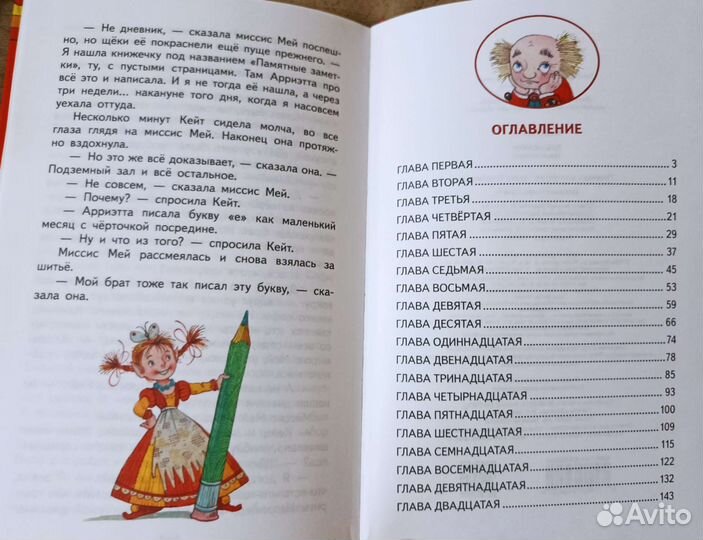 — Не дневник, — сказала миссис Мей поспеш-
но, но щёки её покраснели ещё пуще прежнего. —
Я нашла книжечку под названием «Памятные замет-
ки», ту, с пустыми страницами. Там Арриэтта про
всё это и написала. И я не тогда её нашла, а через
три недели... накануне того дня, когда я насовсем
уехала оттуда.
Несколько минут Кейт сидела молча, во все
глаза глядя на миссис Мей. Наконец она протяж-
но вздохнула.
— Но это же всё доказывает, — сказала она. —
Подземный зал и всё остальное.
— Не совсем, — сказала миссис Мей.
— Почему? — спросила Кейт.
— Арриэтта писала букву «е» как маленький
месяц с чёрточкой посредине.
— Ну и что из того? — спросила Кейт.
Миссис Мей рассмеялась и снова взялась за
шитьё.
— Мой брат тоже так писал эту букву, — ска-
зала она.
ОГЛАВЛЕНИЕ
ГЛАВА ПЕРВАЯ 3
ГЛАВА ВТОРАЯ 11
ГЛАВА ТРЕТЬЯ 18
ГЛАВА ЧЕТВЁРТАЯ 21
ГЛАВА ПЯТАЯ 29
ГЛАВА ШЕСТАЯ 37
ГЛАВА СЕДЬМАЯ 45
ГЛАВА ВОСЬМАЯ 53
ГЛАВА ДЕВЯТАЯ 59
ГЛАВА ДЕСЯТАЯ 66
ГЛАВА ОДИННАДЦАТАЯ 74
ГЛАВА ДВЕНАДЦАТАЯ 78
ГЛАВА ТРИНАДЦАТАЯ 85
ГЛАВА ЧЕТЫРНАДЦАТАЯ 93
ГЛАВА ПЯТНАДЦАТАЯ 100
ГЛАВА ШЕСТНАДЦАТАЯ 109
ГЛАВА СЕМНАДЦАТАЯ 115
ГЛАВА ВОСЕМНАДЦАТАЯ 122
ГЛАВА ДЕВЯТНАДЦАТАЯ 132
ГЛАВА ДВАДЦАТАЯ 143
Avito